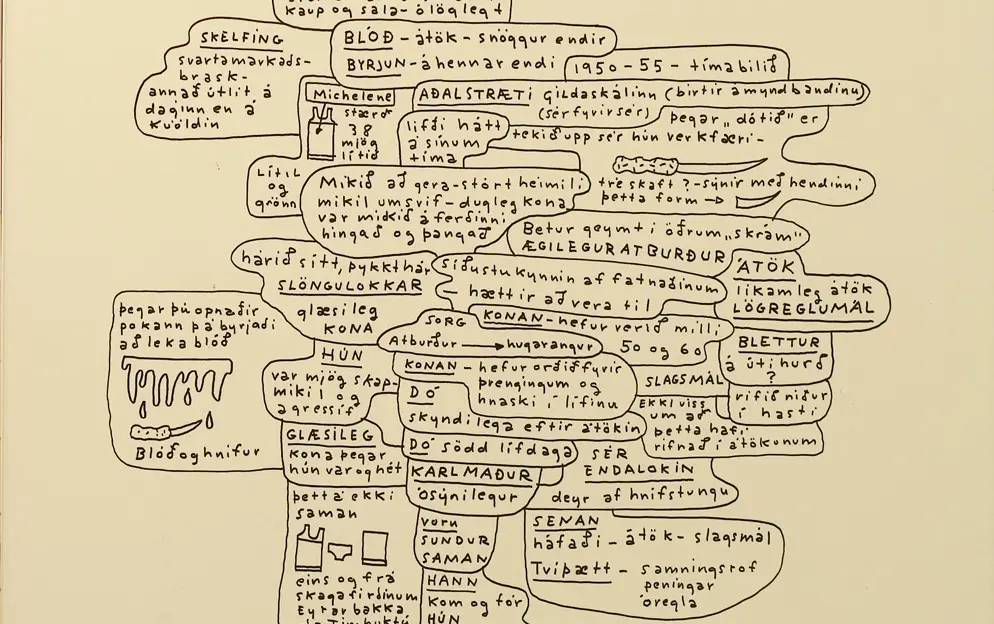 kaup og sala - ólöglegt
SKELFING
svartamarkads-
brask-
annað útlit á
daginn en á
kvöldin
BLÓÐ - átök - snöggur endir
BYRJUN - á hennar endi
1950-55 - tímabilið
Michelene
stærð
38
mjög
lítið
AÐALSTRÆTI gildaskálinn (birtir á myndbandinu)
(sérfyrirsér)
þegar „dótið" er
tekið upp sér hún verkfæri -
lifði hátt
á sínum
tíma
tréskaft ? - sýnir með hendinni
þetta form →
Lítil
og
grönn
Mikið að gera - stórt heimili
mikil umsvif - dugleg kona
var mikið á ferðinni
hingað og þangað
Betur geymt í öðrum „skrám"
ÆGILEGUR ATBURÐUR
hárið sítt, þykkt hár
SLÖNGULOKKAR
glæsileg
KONA
síðustu kynnin af fatnaðinum
- hættir að vera til
ÁTÖK
líkamleg átök
LÖGREGLUMÁL
þegar þú opnaðir
pokann þá byrjaði
að leka blóð
Blóð og hnífur
SORG
Atburður → hugarangur
KONAN - hefur verið milli
50 og 60
BLETTUR
á útihurð
?
HÚN
var mjög skap-
mikil og
agressíf
KONAN - hefur orðið fyrir
þrengingum og
hnaski í lífinu
DÓ
skyndilega eftir átökin
SLAGSMÁL
EKKI viss
um að
þetta hafi
rifnað í átökunum
rifið niður
í hasti
GLÆSILEG
kona þegar
hún var og hét
DÓ södd lífdaga
SÉR
ENDALOKIN
deyr af hnífstungu
KARLMAÐUR
ósýnilegur
þetta ekki
saman
eins og frá
skagafirðinum
Eyrarbakka
Timbuktú
vorn
SUNDUR
SAMAN
HANN
kom og fór
HÚN
SENAN
háfaði - átök - slagsmál
Tvíþætt - samningsrof
peningar
óregla